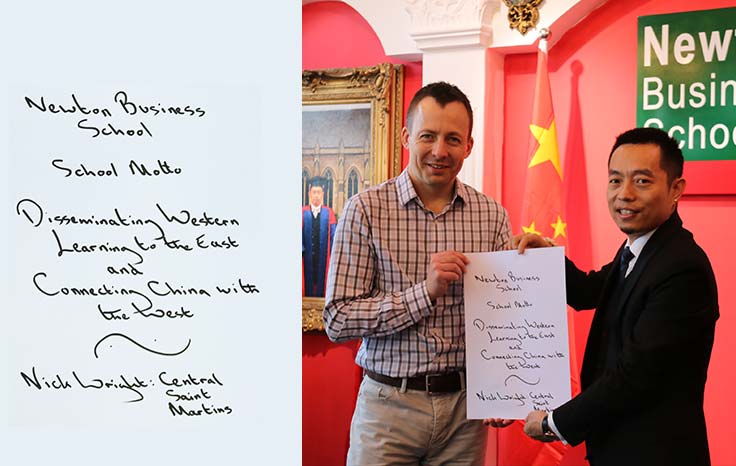 Newton Business
School
School Motto
Disseminating Western
Learning to the East
and
Connecting China with
the West
Nick Wright: Central
Saint
Martins
Newt
Busin
School
Newton Business
School
School Motto
Disseminating Western
Learning to the East
and
Connecting China with
the West
Nick Wright: Central
Saint